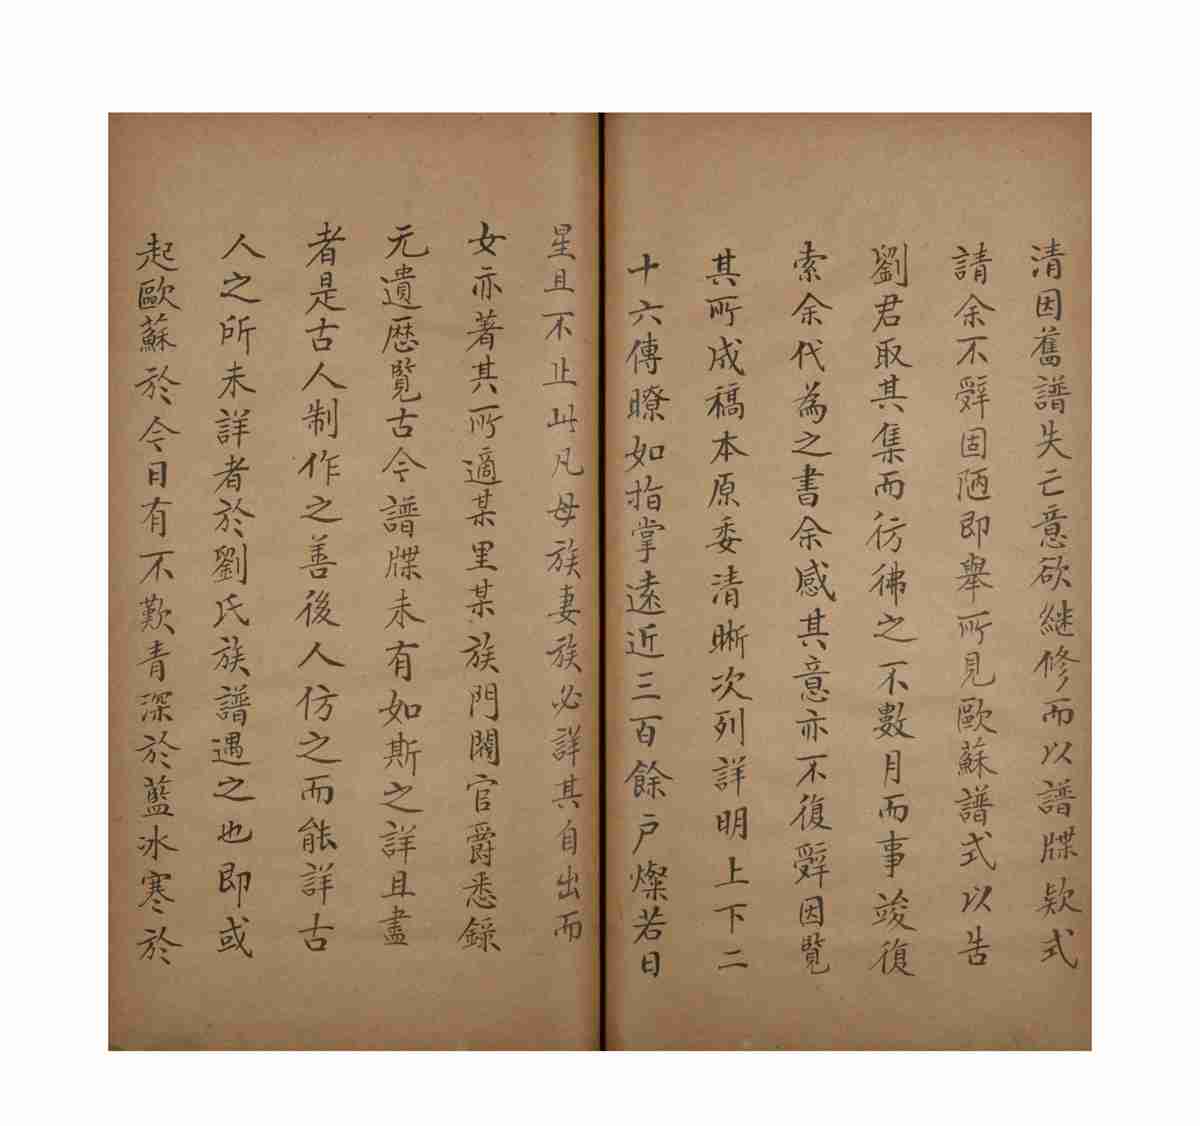 清因舊譜失亡意欲継修而以譜牒欵式
請余不辤固陋即舉所見歐蘇譜式以告
劉君取其集而彷彿之不數月而事竣復
索余代為之書余感其意亦不復辤因覧
其所成稿本原委清晰次列詳明上下二
十六傳瞭如指掌遠近三百餘户燦若日
星且不止此凡母族妻族必詳其自出而
女亦著其所適某里某族門閥官爵悉錄
元遺歴覧古今譜牒未有如斯之詳且盡
者是古人制作之善後人仿之而能詳古
人之所未詳者於劉氏族譜遇之也即或
起歐蘇於今日有不歎青深於藍冰寒於